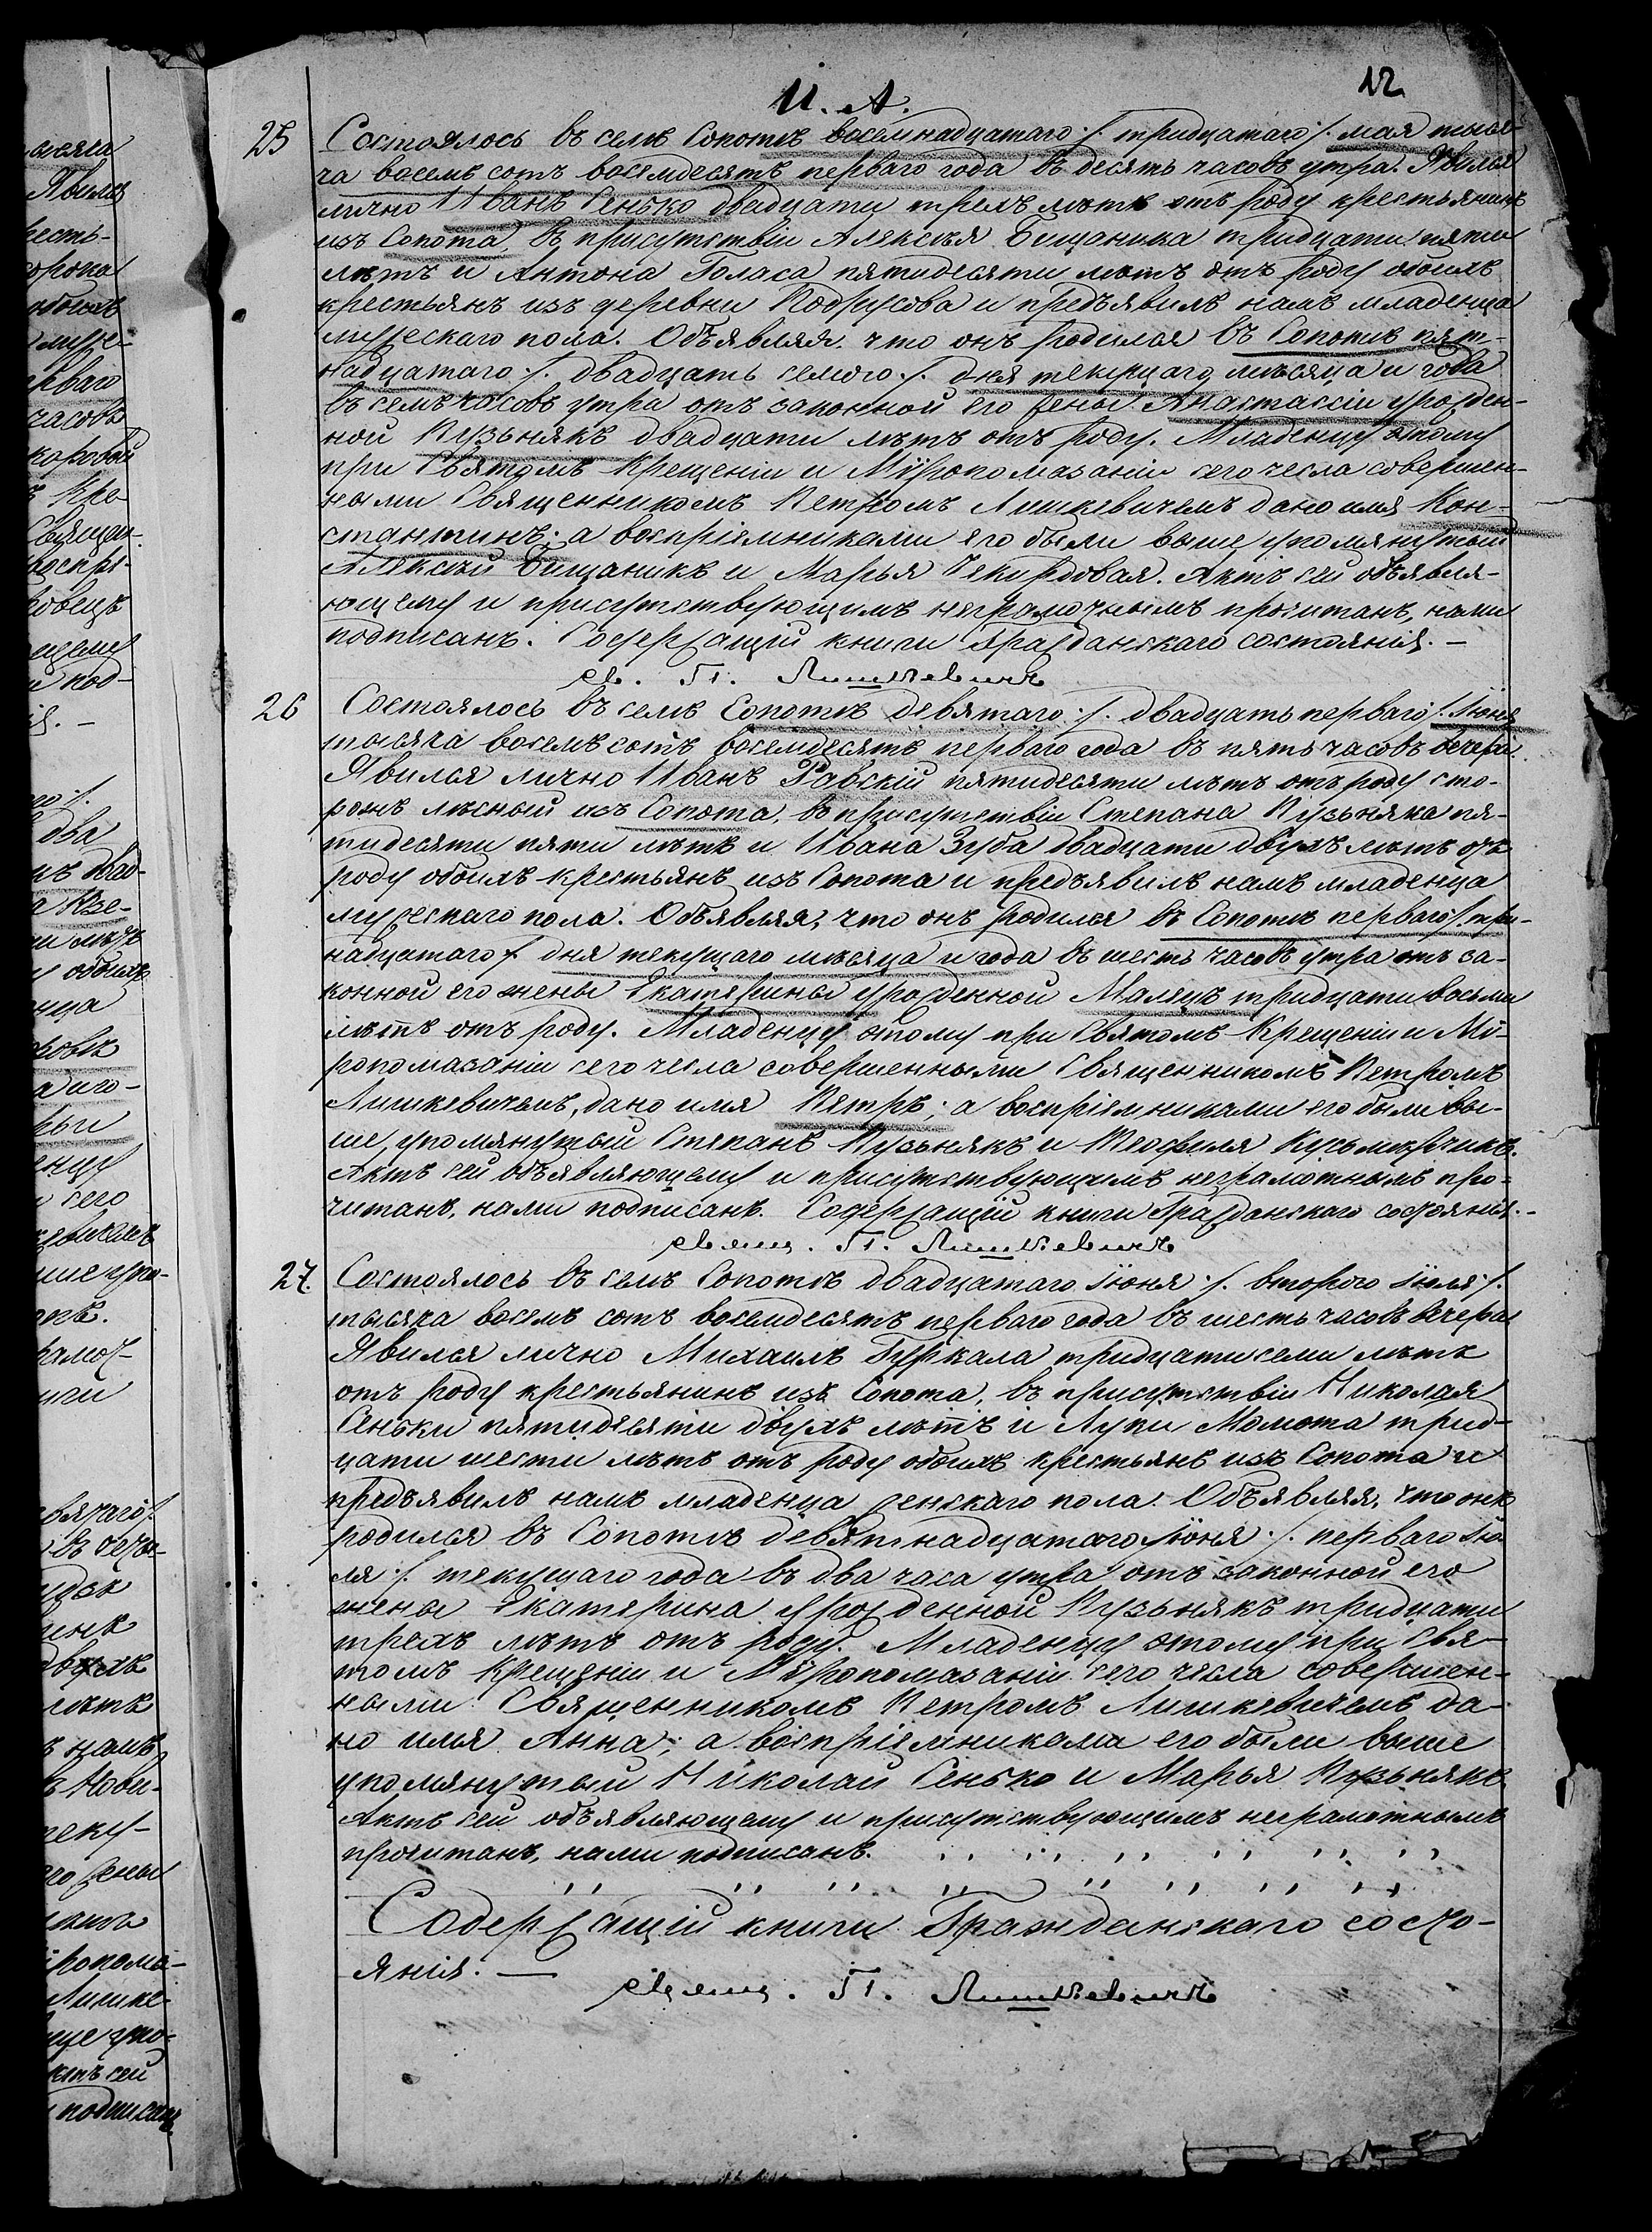 И. А.
12
25 Состоялось въ селѣ Сопотѣ восемнадцатаго ./. тридцатаго ./. мая тыся-
ча восемь сотъ восемдесятъ перваго года въ десять часовъ утра. Явился
лично Иванъ Сенько двадцати трехъ лѣтъ отъ роду крестьянинъ
изъ Сопота въ присутствіи Алексѣя Бищаника тридцати пяти
лѣтъ и Антона Голаса пятидесяти лѣтъ отъ роду обоихъ
крестьянъ изъ деревни Подрусова и предъявилъ намъ младенца
мужескаго пола. Объявляя что онъ родился въ Сопотѣ пят-
надцатаго ./. двадцать семого ./. дня текущаго мѣсяца и года
въ семь часовъ утра отъ законной его жены Анастассіи урожден-
ной Кузьнякъ двадцати лѣтъ отъ роду. Младенцу этому
при Святомъ Крещеніи и Мѵропомазаніи сего чесла совершен-
ными Священникомъ Петромъ Лишкевичемъ дано имя Кон-
стантинъ; а воспріемниками его были выше упомянутый
Алексѣй Бищаникъ и Марья . Актъ сей объявля-
ющему и присутствующимъ неграмотнымъ прочитанъ, нами
подписанъ. Содержащій книги Гражданскаго состоянія. —
св. П. Лишкевичъ
26 Состоялось въ селѣ Сопотѣ девятаго ./. двадцать перваго ./. Іюня
тысяча восемь сотъ восемдесятъ перваго года въ пять часовъ вечера.
Явился лично Иванъ Равскій пятидесяти лѣтъ отъ роду сто-
рожъ лѣсный изъ Сопота, въ присутствіи Степана Кузьняка пя-
тидесяти пяти лѣтъ и Ивана Зуба двадцати двухъ лѣтъ отъ
роду обоихъ крестьянъ изъ Сопота и предъявилъ намъ младенца
мужескаго пола. Объявляя, что онъ родился въ Сопотѣ перваго ./. три-
надцатаго ./. дня текущаго мѣсяца и года въ шесть часовъ утра отъ за-
конной его жены Екатерины урожденной Малецъ тридцати восьми
лѣтъ отъ роду. Младенцу этому при Святомъ Крещеніи и Мѵ-
ропомазаніи сего чесла совершенными Священникомъ Петромъ
Лишкевичемъ, дано имя Петръ; а воспріемниками его были вы-
ше упомянутый Степанъ Кузьнякъ и Теофиля .
Актъ сей объявляющему и присутствующимъ неграмотнымъ про-
читанъ, нами подписанъ. Содержащій книги Гражданскаго состоянія. -
свящ. П. Лишкевичъ
27. Состоялось въ селѣ Сопотѣ двадцатаго Іюня ./. второго Іюля ./.
тысяча восемь сотъ восемдесятъ перваго года въ шесть часовъ вечера
Явился лично Михаилъ Гуркала тридцати семи лѣтъ
отъ роду крестьянинъ изъ Сопота, въ присутствіи Николая
Сеньки пятидесяти двухъ лѣтъ и Лупи Момота трид-
цати шести лѣтъ отъ роду обоихъ крестьянъ изъ Сопота и
предъявилъ намъ младенца женскаго пола. Объявляя, что онъ
родился въ Сопотѣ девятнадцатаго Іюня ./. перваго Ію-
ля ./. текущаго года въ два часа утра отъ законной его
жены Екатерина урожденной Кузьнякъ тридцати
трехъ лѣтъ отъ роду. Младенцу этому при Свя-
томъ Крещеніи и Мѵропомазаніи сего чесла совершен-
ными Священникомъ Петромъ Лишкевичемъ да-
но имя Анна; а воспріемниками его были выше
упомянутый Николай Сенько и Марья Кузьнякъ
Актъ сей объявляющему и присутствующимъ неграмотнымъ
прочитанъ, нами подписанъ.
Содержащій книги Гражданскаго состо-
янія. —
свящ. П. Лишкевичъ